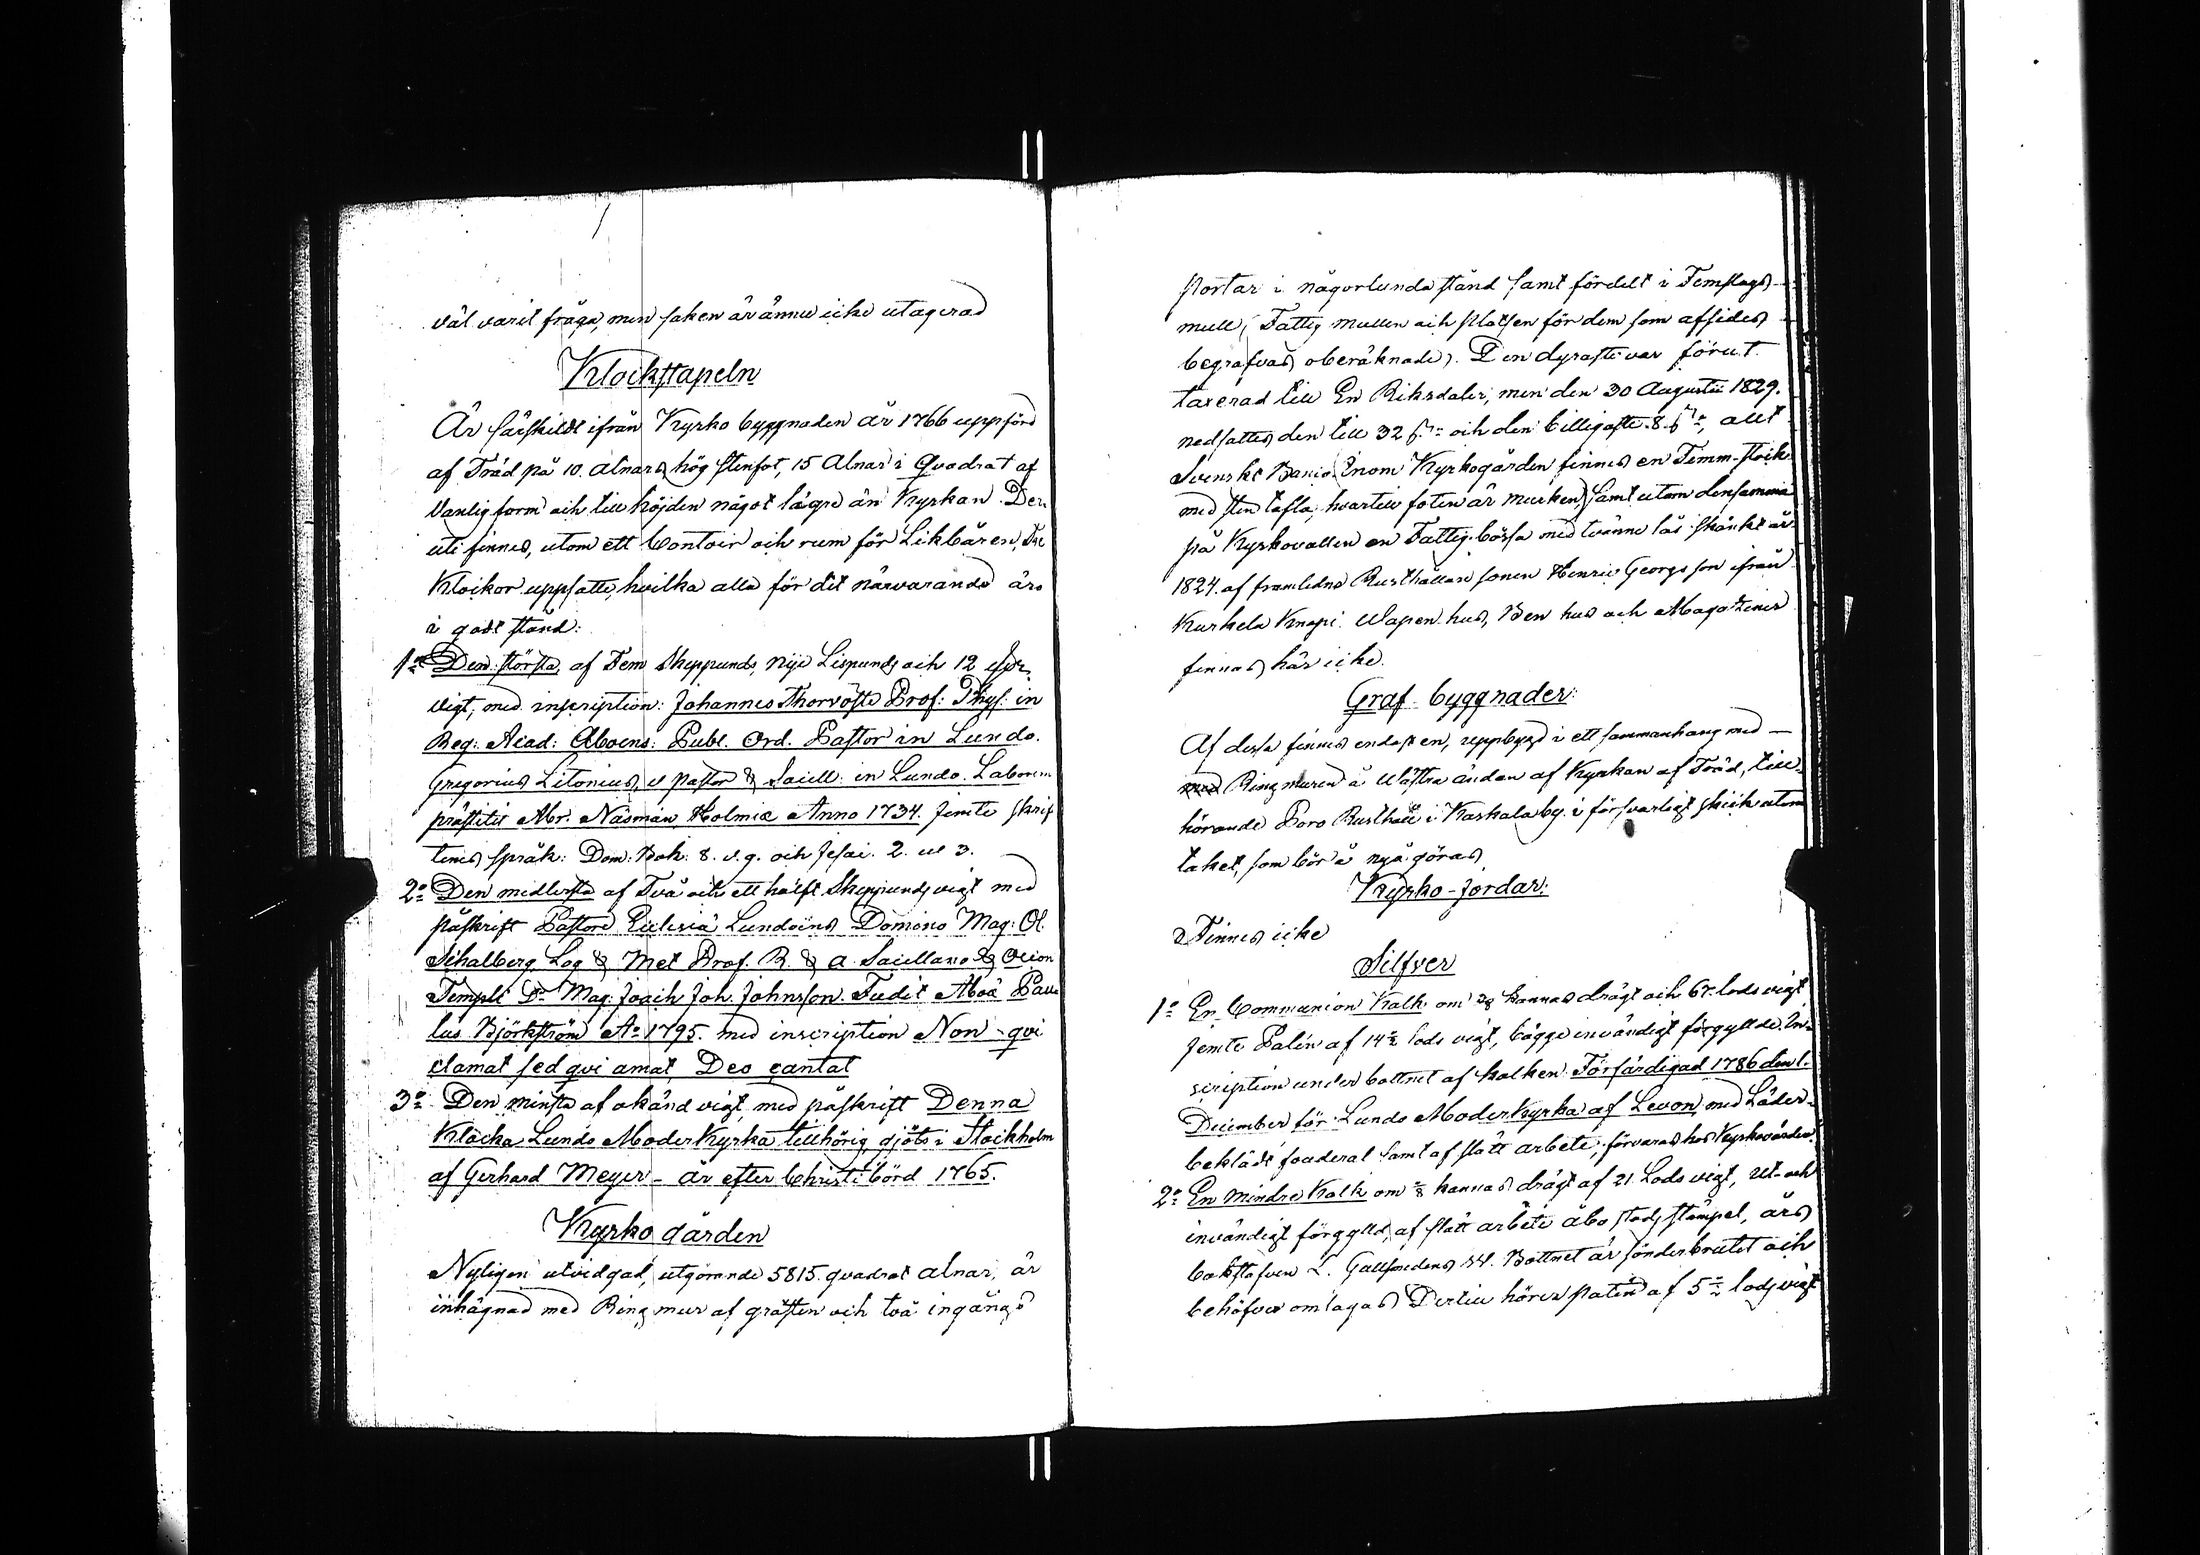 väl varit fråga, men saken är ännu icke utagerad
Klockstapeln
Är särskildt ifrån Kyrko byggnaden år 1766 uppförd
af Träd på 10. alnars hög stenfot, 15 Alnar i Quadrat af
vanlig form och till höjden något lägre än Kyrkan. Der
uti finnes, utom ett Contoir och rum för Likbåren, Tre
Klockor uppsatte, hvilka alla för det närvarande äro
i godt stånd:
1:o Den största af Fem Skeppunds, nije Lispunds och 12
vigt, med inscription: Johannes Thorvöste Prof: Phys: in
Reg: Acad: Aboens: Publ. Ord. Pastor in Lundo.
Gregorius Litonius, v pastor & Sacell: in Lundo. Laborem
præstitit Mr. Näsman Holmiæ Anno 1734. Jemte skrif
tenes språk: Dom. Bok. 8. v. 9. och Jesai. 2. v 3.
2:o Den medlersta af Två och ett halft Skeppunds vigt med
påskrift Pastore Ecclesiæ Lundoëns Domino Mag: Ol.
Schalberg Log & Met Prof. R. & a Sacellano &
Templi Do Mag. Joach Joh. Johnsson. Fudit Aboæ Pau
lus Björkström Ao 1795. med inscription Non - qvi
clamat sed qvi amat, Deo cantat
3:o Den minsta af okänd vigt med påskrift Denna
Klocka Lundo Moder Kyrka tillhörig gjöts i Stockholm
af Gerhard Meyer - år efter Christi börd 1765.
Kyrko gården
Nyligen utvidgad, utgörande 5815. quadrat alnar, är
inhägnad med Ring mur af gråsten och två ingångs
portar i någorlunda stånd samt fördelt i Femslags
mull, (Fattig mullen och platsen för dem som afsides
begrafvas oberäknade). Den dyraste var förut
taxerad till En Riksdaler, men den 30 Augusti 1829.
nedsattes den till 32 s. och den billigaste 8 s., allt
Svenskt Banco. Inom Kyrkogården finnes en Timm-stock
med sten tafla, hvartill foten är murken, samt utom densamma
på Kyrkovallen en Fattig-bössa med tvänne lås skänkt år
1824. af framlidne Rusthållare sonen Henric Georgsson ifrån
Kurkela Knapi. Wapen hus, Ben hus och Magaziner
finnas här icke.
Graf byggnader:
Af dessa finnes endast en, uppbygd i ett sammanhang med
med Ringmuren å Westra ändan af Kyrkan af Träd, till-
hörande Poro Rusthåll i Kaskala by. i försvarligt skick utom
taket, som bör å nyo göras
Kyrko-Jordar:
Finnes icke
Silfver
1:o En Communion Kalk om kannas drägt och 67. lods vigt
Jemte Paten af 14 lods vigt, bägge invändigt förgyllde. In-
scription under bottnet af kalken. Förfärdigad 1786 den 1.
December för Lundo Moder Kyrka af Levon, med Läder
beklädt foderal samt af slätt arbete, förvaras hos Kyrkovärden.
2:o En mindre Kalk om kannas drägt af 21. Lods vigt, Ut- och
invändigt förgylld, af slätt arbete åbo stads stämpel, års
bokstafven L. Bottnet är sönderbrutet och
behöfver omlagas Dertill hörer paten af 5 lods vigt